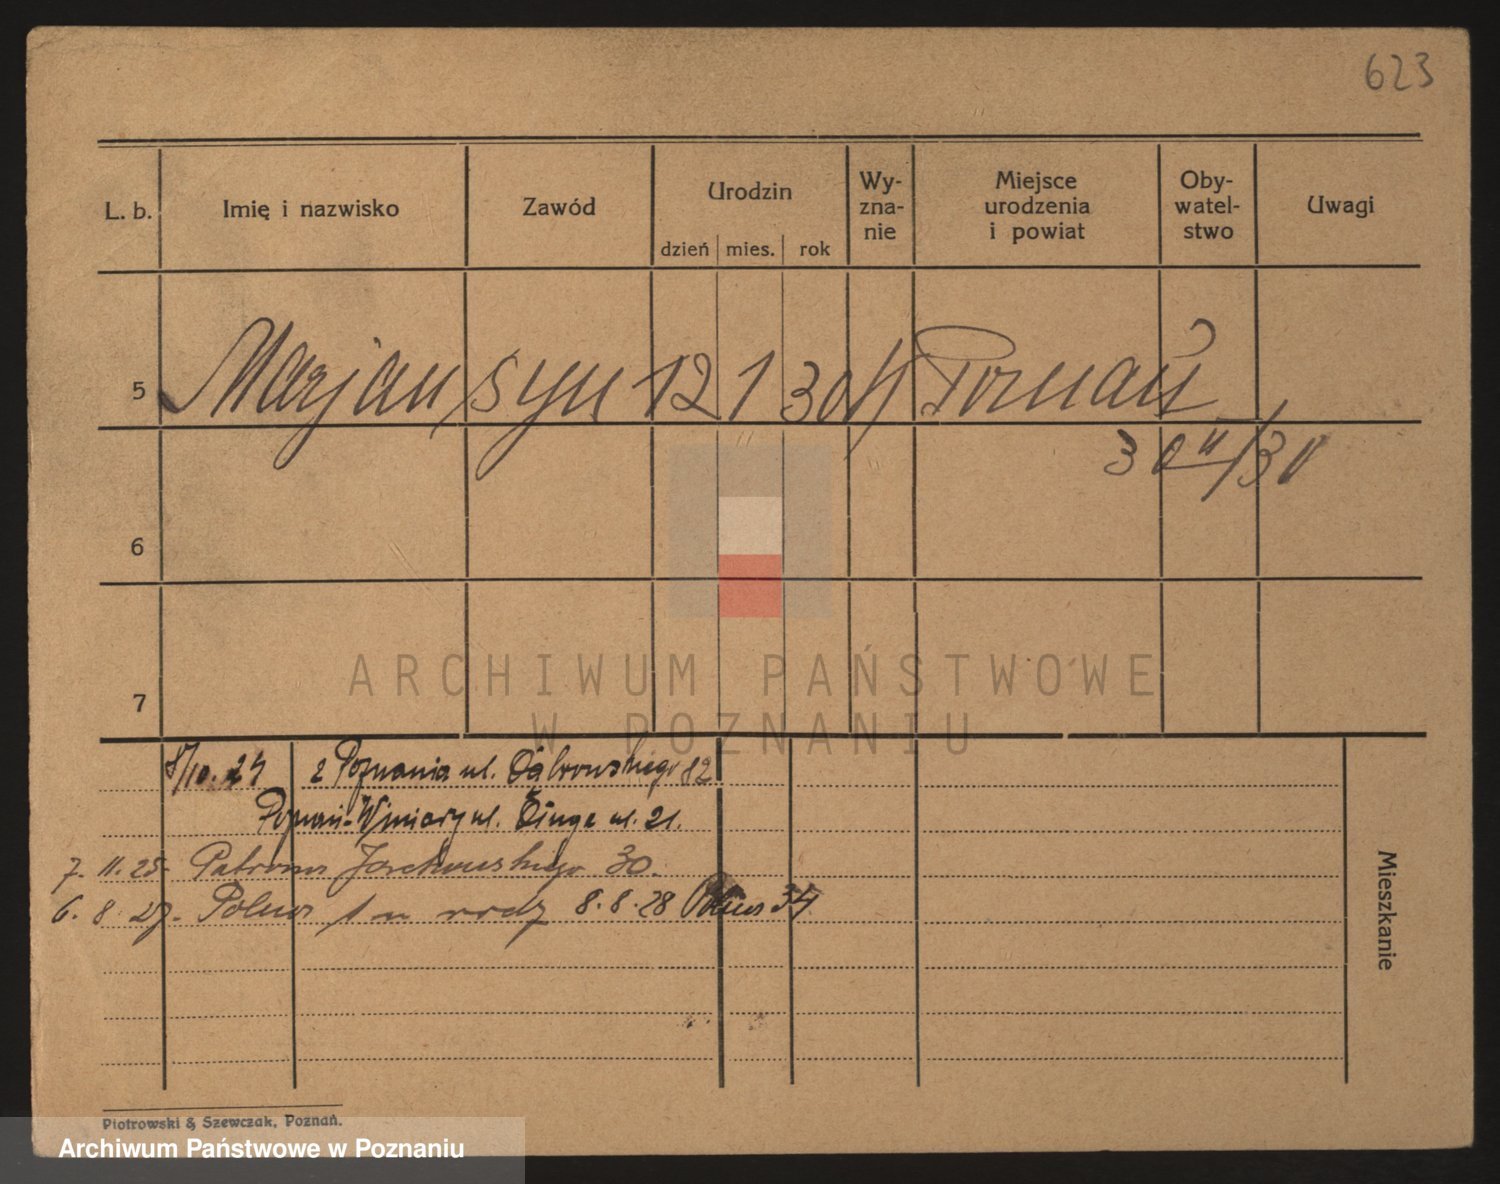 623
L. b. Imię i nazwisko Zawód Urodzin dzień mies. rok Wy-zna-nie Miejsce urodzenia i powiat Oby-watel-stwo Uwagi
5 Marjan syn 12 1 30 Poznań
30 30
6
7
ARCHIWUM PAŃSTWOWE
W POZNANIU
/10. 24 z Poznania ul. Dąbrowskiego 82
Poznań-Winiary ul. Długa ul. 21.
7. 11. 25. Patrona Jackowskiego 30.
6. 8. 27. Polna 8. 8. 28 Polna 34
Mieszkanie
Piotrowski & Szewczak, Poznań.
Archiwum Państwowe w Poznaniu